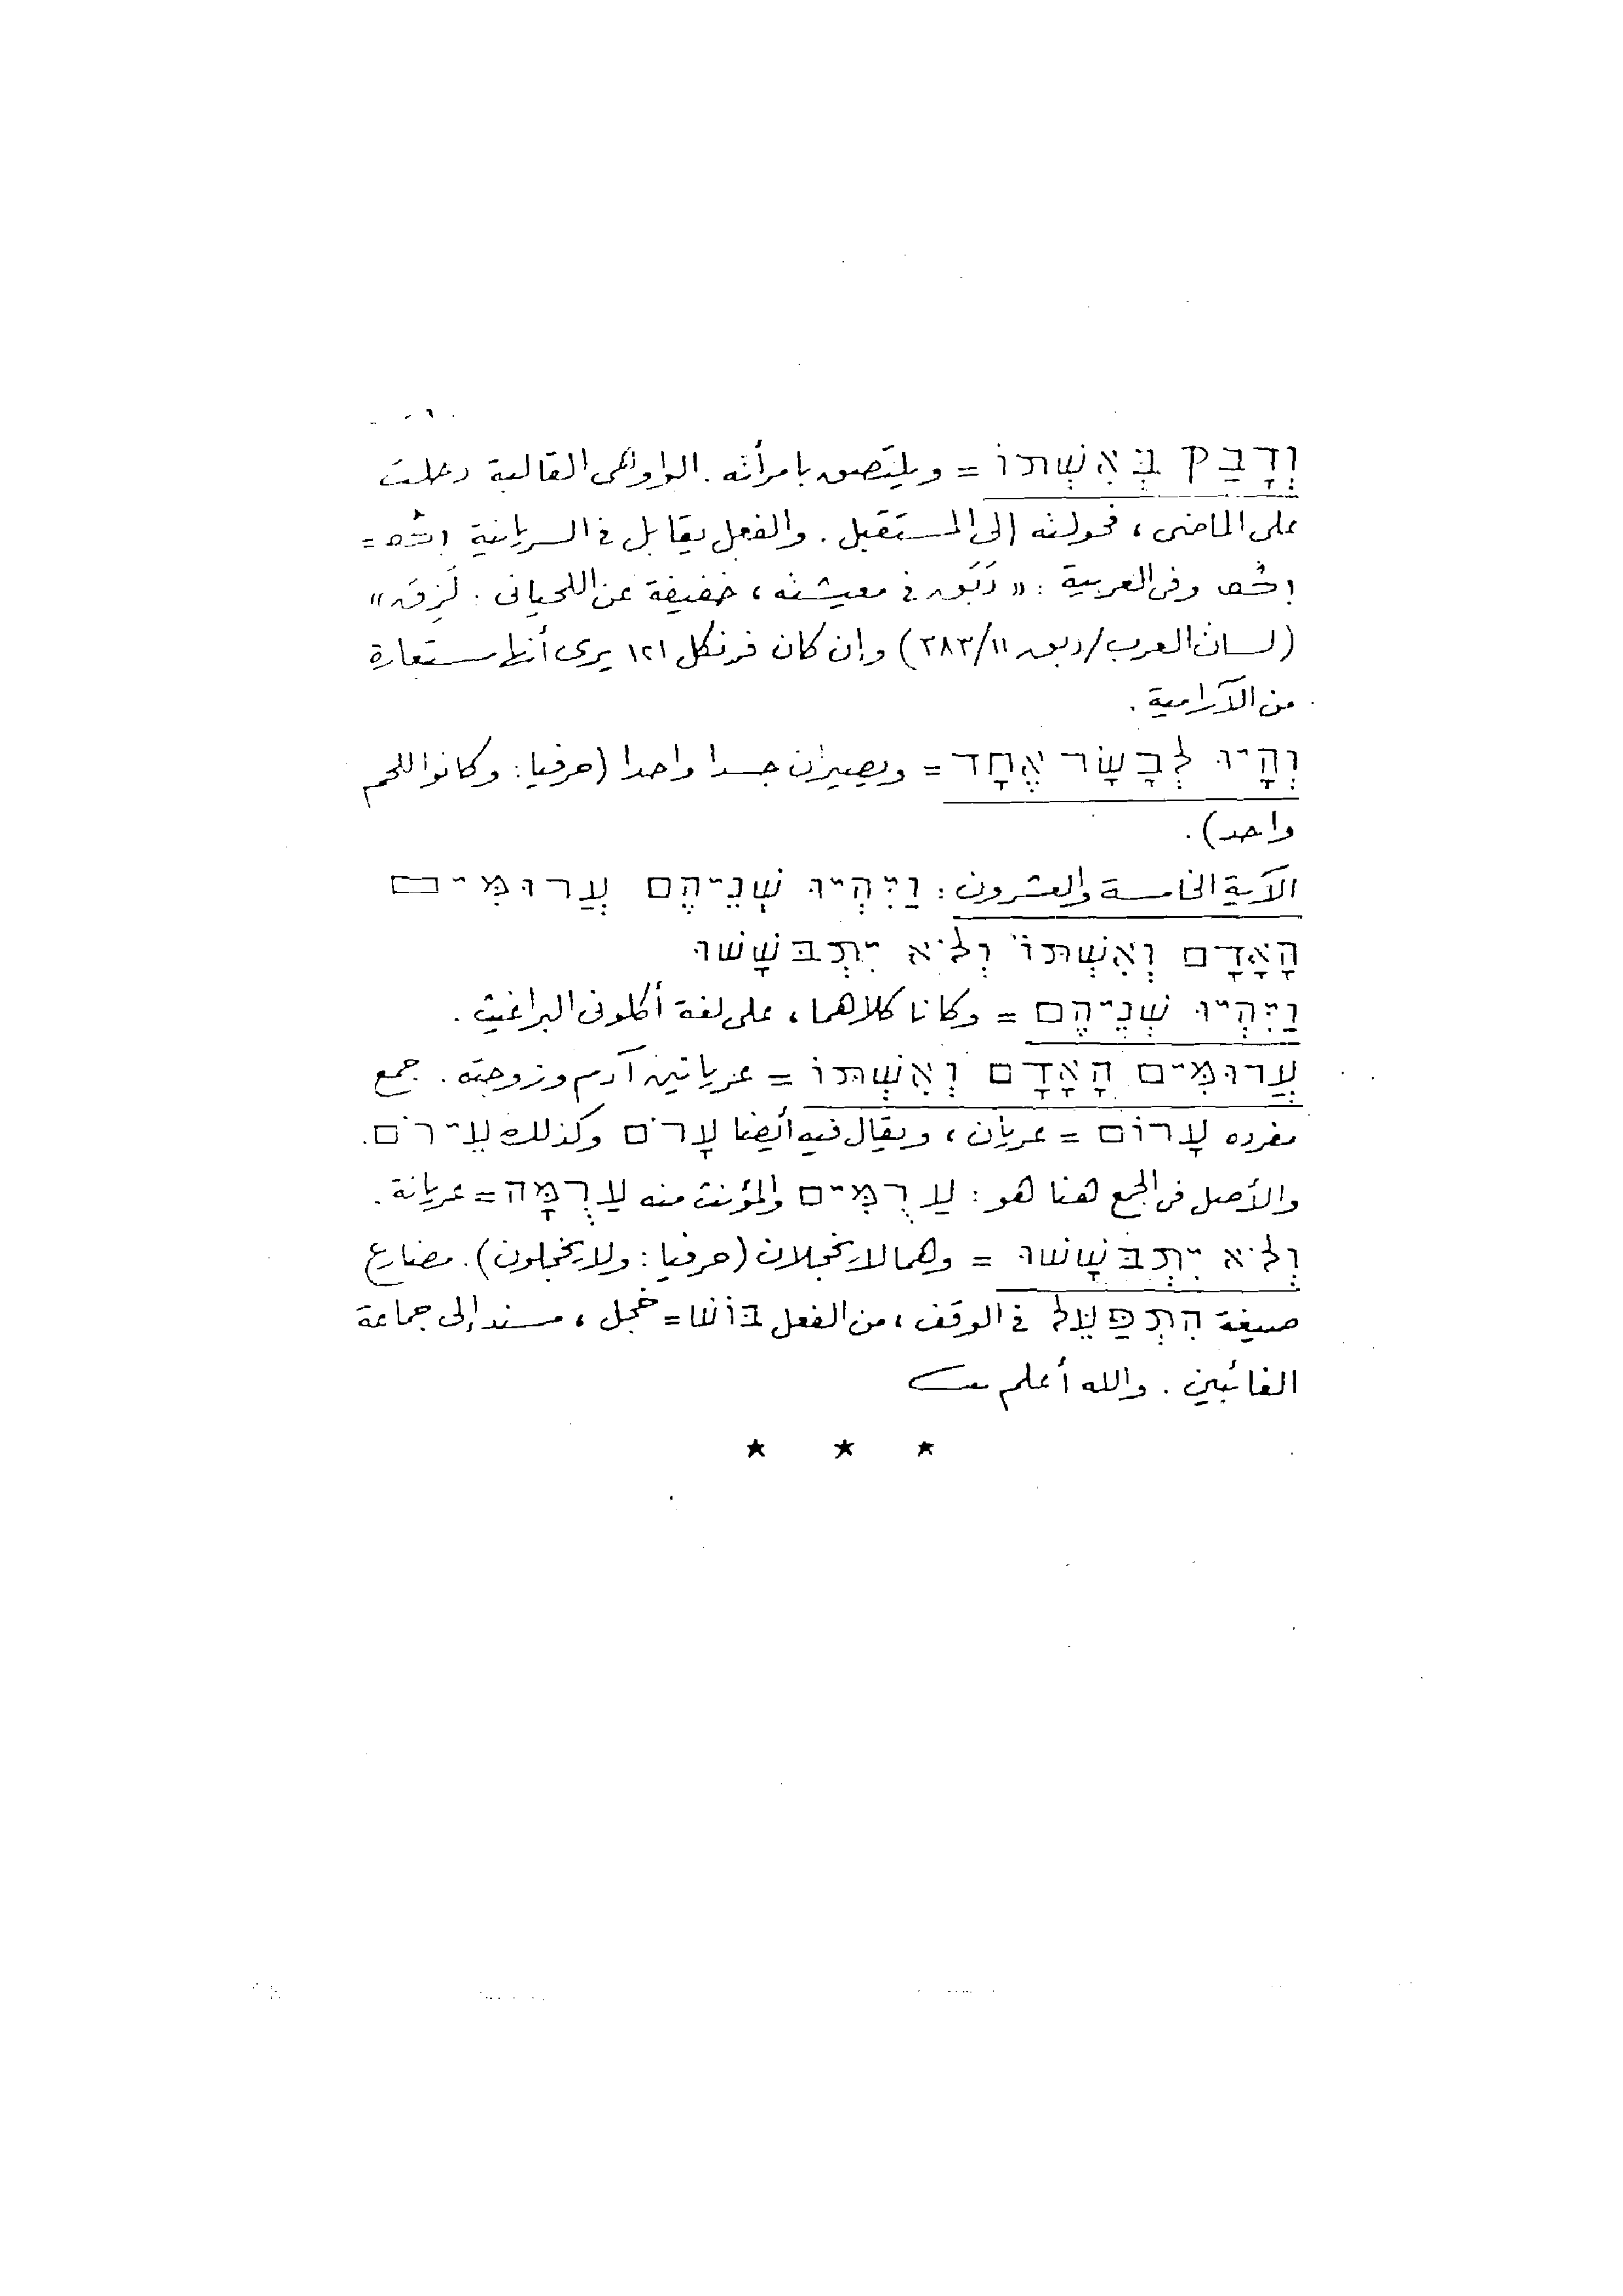 וְדָבַק בְּאִשְׁתּוֹ = ويلتصق بامرأته. الواو هى القالبة دخلت
على الماضى، فحولته إلى المستقبل. والفعل يقابل فى السريانية =
وفى العربية: «دَبَق فى معيشته، خفيفة عن اللحيانى: لَزِقَ»
(لسان العرب/دبق ١١/٣٨٣) وإن كان فرنكل ١٢١ يرى أنها مستعارة
من الآرامية.
וְהָיוּ לְבָשָׂר אֶחָד = ويصيران جسدا واحدا (حرفيا: وكانوا للحم
واحد).
الآية الخامسة والعشرون: וַיִּהְיוּ שְׁנֵיהֶם עֲרוּמִּים
הָאָדָם וְאִשְׁתּוֹ וְלֹא יִתְבּשָׁשׁוּ
וַיִּהְיוּ שְׁנֵיהֶם = وكانا كلاهما، على لغة أكلونى البراغيث.
עֲרוּמִּים הָאָדָם וְאִשְׁתּוֹ = عريانين آدم وزوجته. جمع
مفرده עָרוֹם = عريان، ويقال فيه أيضا עָרֹם وكذلك עֵירֹם.
والأصل فى الجمع هنا هو: עַרֻמִּים والمؤنث منه עַרֻמָּה = عريانة.
וְלֹא יִתְבּשָׁשׁוּ = وهما لا يخجلان (حرفيا: ولا يخجلون). مضارع
صيغة הִתְפַּעֵל فى الوقف، من الفعل בּוֹשׁ = خجل، مسند إلى جماعة
الغائبين. والله أعلم